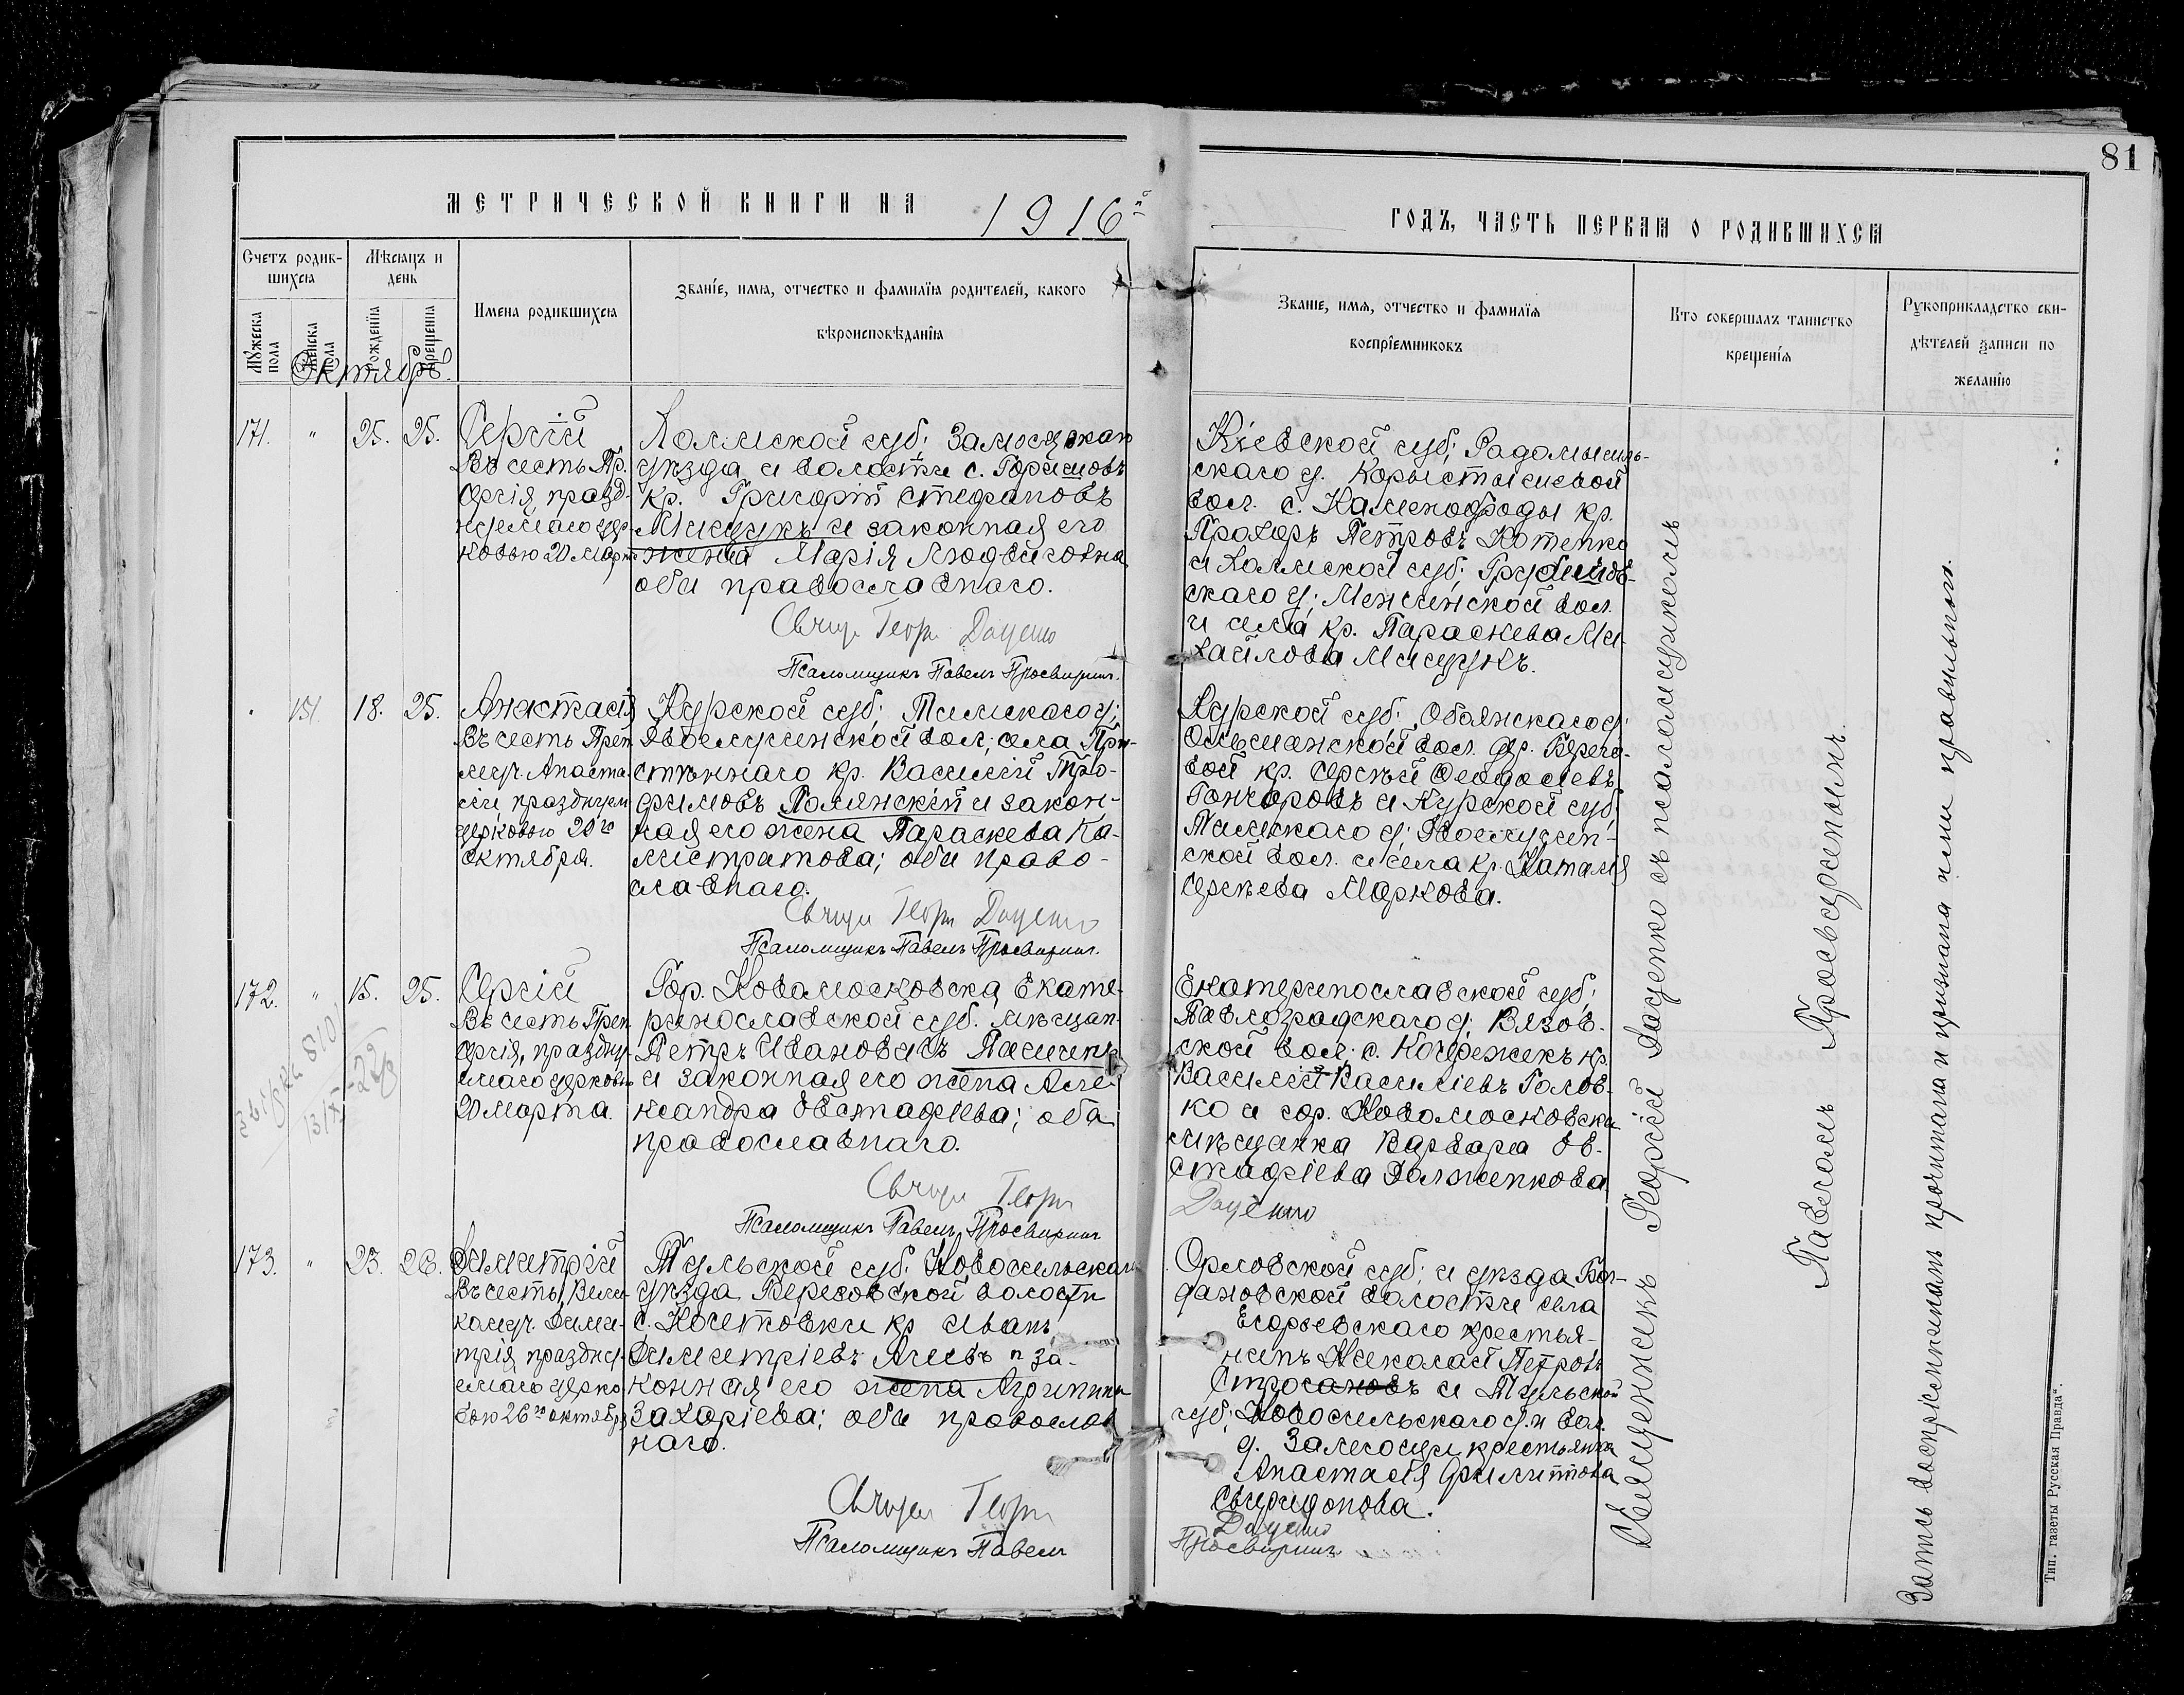 81
МЕТРИЧЕСКОЙ КНИГИ НА 1916й
ГОДЪ, ЧАСТЬ ПЕРВАЯ О РОДИВШИХСЯ
Счетъ родив-
шихся
Мѣсяцъ и
день
Мужеска
пола
Женска
пола
Рожденія
Крещенія
Имена родившихся
Званіе, имя, отчество и фамилія родителей, какого
вѣроисповѣданія
Званіе, имя, отчество и фамилія
воспріемниковъ
Кто совершалъ таинство
крещенія
Рукоприкладство сви-
дѣтелей записи по
желанію
Октябрь.
171. " 25. 25.
Сергій
Въ честь Пр.
Сергія, празд-
нуемаго цер-
ковью 20 марта
Холмской губ: Замостскаго
уѣзда и волости с.
кр. Григорій Стефановъ
Мисюкъ и законная его
жена Марія Людвиговна
оба православнаго.
Свящ. Георг. Даценко
Псаломщикъ Павелъ Просвиринъ.
Кіевской губ; Радомысль-
скаго у. Коростышевской
вол. с. Каменоброды кр.
Прохоръ Петровъ Котенко
и Холмской губ; Грубешов-
скаго у; вол.
и села кр. Параскева Ми-
хайлова Мисюкъ.
151. 18. 25.
Анастасія
Въ честь Преп.
муч. Анаста-
сіи, празднуем.
церковью 29го
октября.
Курской губ; Тимскаго у;
Двоелучинской вол; села При-
стѣннаго кр. Василій Тро-
фимовъ Полянскій и закон-
ная его жена Параскева Ка-
листратова; оба право-
славнаго.
Свящ. Георг. Даценко
Псаломщикъ Павелъ Просвиринъ.
Курской губ: Обоянскаго у;
Ольшанской вол. др. Берего-
вой кр. Сергѣй Феодосіевъ
Гончаровъ и Курской губ;
Тимскаго у; Двоелучин-
ской вол. и села кр. Наталія
Сергѣева Маркова.
172. " 15. 25.
Сергій
Въ честь Преп.
Сергія, празднуе-
маго церковью
20 марта.
Гор. Новомосковска Екате-
ринославской губ. мѣщан.
Петръ Ивановичъ
и законная его жена Але-
ксандра Евстафіева; оба
православнаго.
Свящ. Георг. Даценко
Псаломщикъ Павелъ Просвиринъ
Екатеринославской губ;
Павлоградскаго у; Вязов-
ской вол; с. Кочережекъ кр.
Василій Василіевъ Голов-
ко и гор. Новомосковска
мѣщанка Варвара Ев-
стафіева Долженкова
173. " 23. 26.
Димитрій
Въ честь Вели-
комуч. Дими-
трія, праздну-
емаго церко-
вью 26го октября
Тульской губ: Новосильскаго
уѣзда Верховской волости
с. Кочетовки кр Иванъ
Димитріевъ и за-
конная его жена Агрипина
Захаріева; оба православ
наго.
Свящ. Георг. Даценко
Псаломщикъ Павелъ Просвиринъ
Орловской губ; и уѣзда Бог-
дановской волости села
Егорьевскаго крестья-
нинъ Николай Петровъ
и Тульской
губ; Новосильскаго у. и вол.
д. Залегощи крестьянка
Анастасія Филиппова
Свиридонова.
Священникъ Георгій Даценко съ псаломщикомъ
Павеломъ Просвурсенымъ.
Запись воспріемникамъ прочитана и признана ими правильной.
Тип. газеты Русская Правда“.